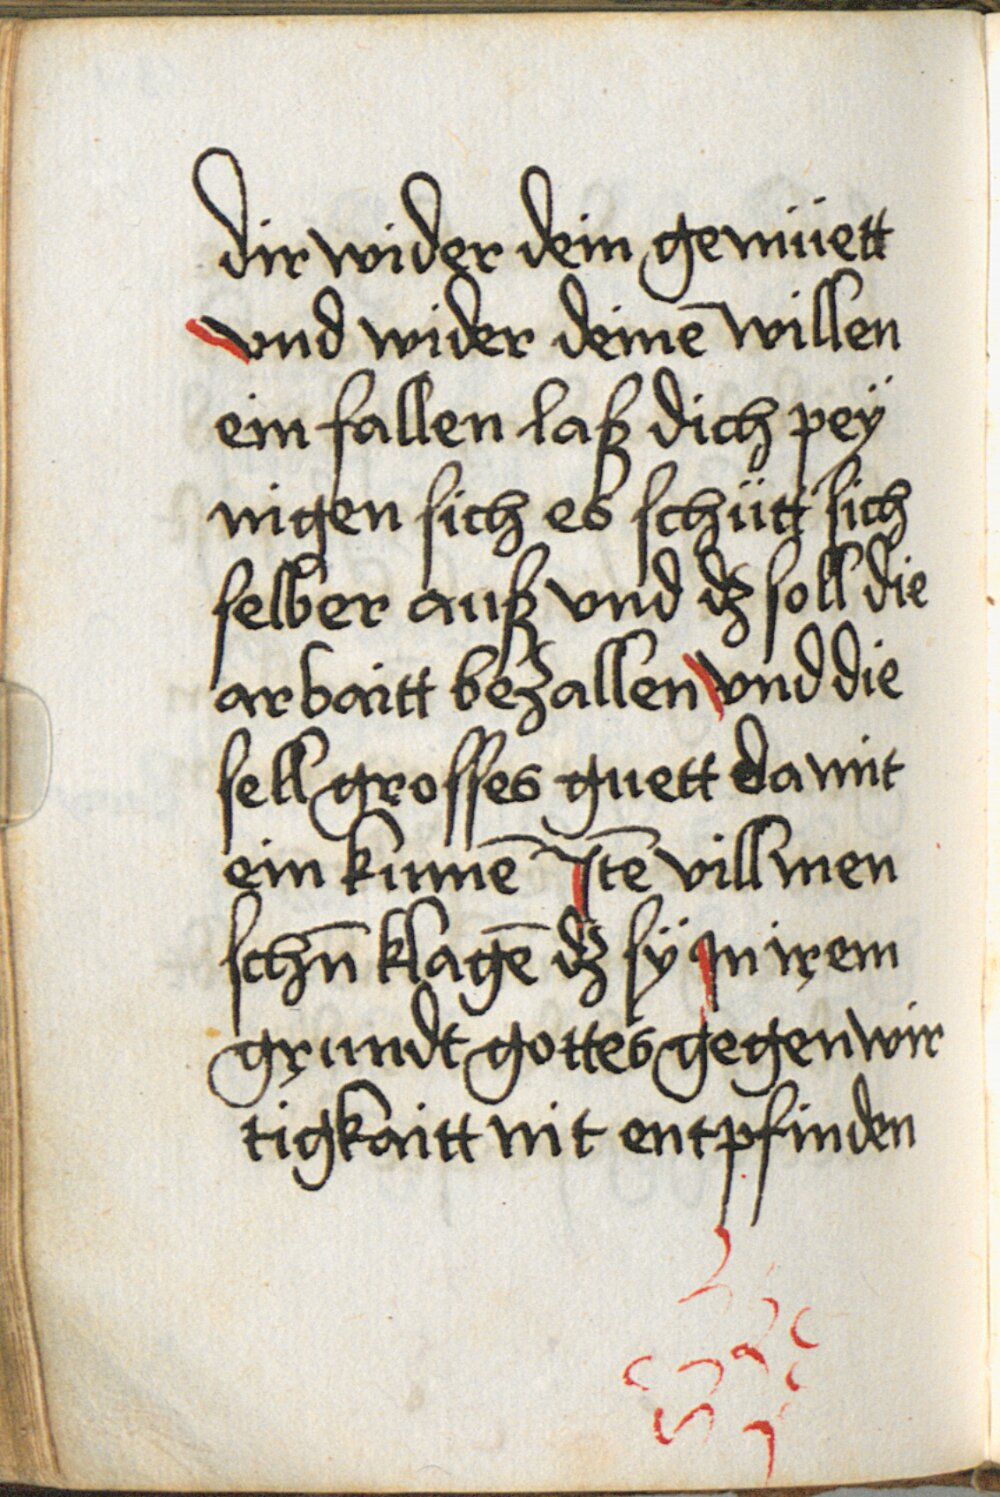 dir wider dein gemüett
vnd wider deinē willen
ein fallen laß dich pey
nigen sich es schütt sich
selber auß vnd dz soll die
arbaitt bezallen vnd die
sell grosses guett da mit
ein kumē Itē vill men
schn̄ klagē dz sÿ in irem
grundt gottes gegenwir
tigkaitt nit entpfinden